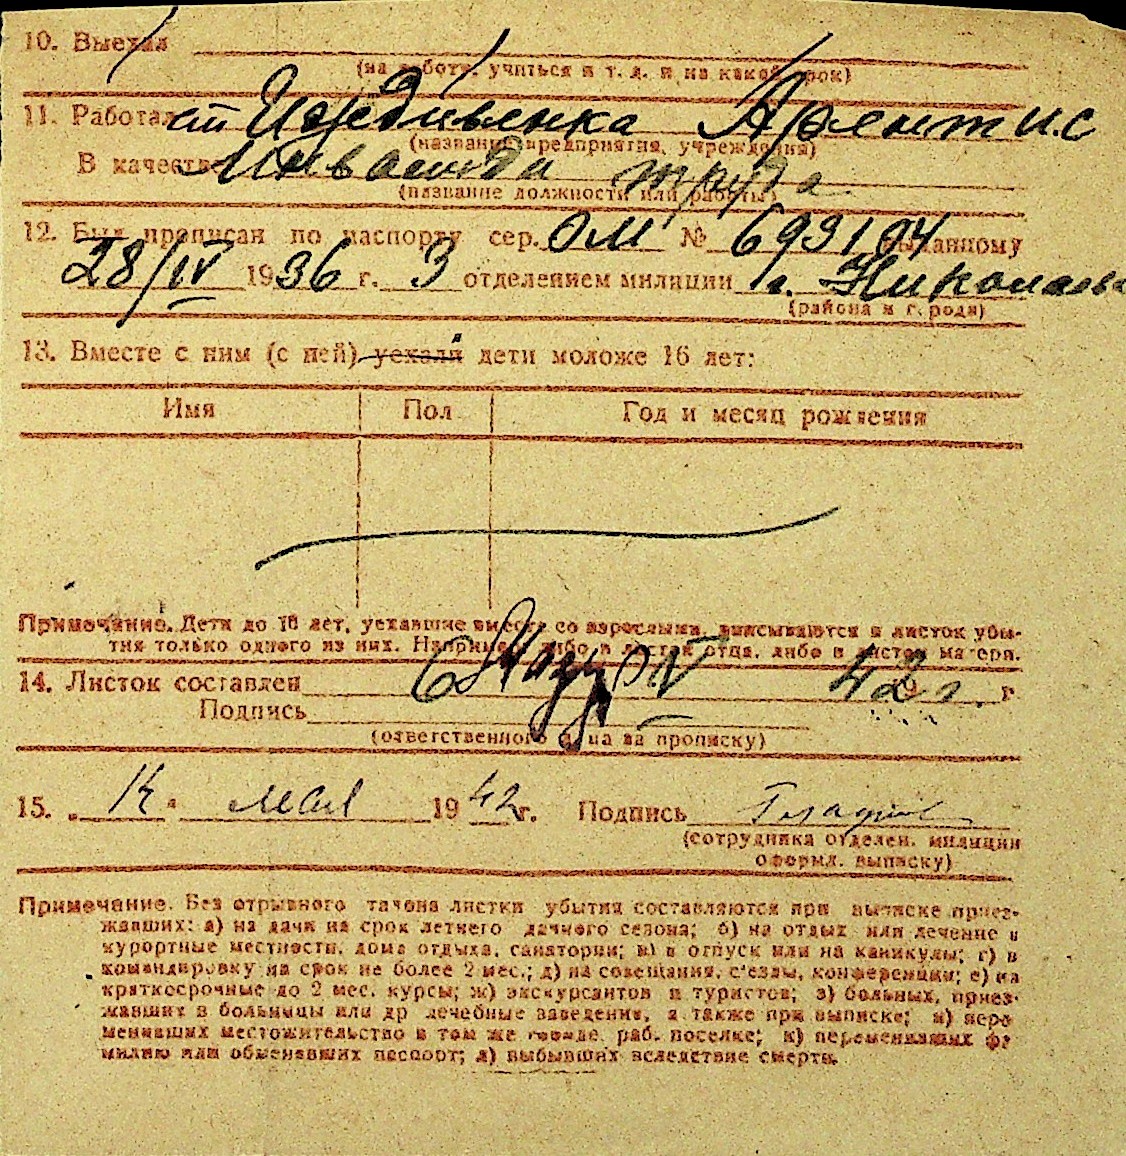 10. Выехал
(на работу, учиться и т. д. и на какой срок)
11. Работал ст
(название предприятия, учреждения)
В качестве Инвалида труда
(название должности или работы)
12. Был прописан по паспорту сер. ОМ № 693104 выданному
28/IV 1936 г. 3 отделением милиции г. Николаева
(района и города)
13. Вместе с ним (с ней) уехали дети моложе 16 лет:
Имя Пол Год и месяц рождения
Примечание. Дети до 16 лет, уехавшие вместе со взрослыми, вписываются в листок убы-
тия только одного из них. Например, либо в листок отца, либо в листок матери.
14. Листок составлен 6 IV 1942 г. г
Подпись
(ответственного лица за прописку)
15. мая 1942 г. Подпись
(сотрудника отделен. милиции
оформл. выписку)
Примечание. Без отрывного талона листки убытия составляются при выписке приез-
жавших: а) на дачи на срок летнего дачного сезона; б) на отдых или лечение в
курортные местности, дома отдыха, санатории; в) в отпуск или на каникулы; г) в
командировку на срок не более 2 мес.; д) на совещания, с'езды, конференции; е) на
краткосрочные до 2 мес. курсы; ж) экскурсантов и туристов; з) больных, приез-
жавших в больницы или др лечебные заведения, а также при выписке; и) пере
менивших местожительство в том же городе, раб. поселке; к) переменивших фа
милию или обменявших паспорт; л) выбывших вследствие смерти.